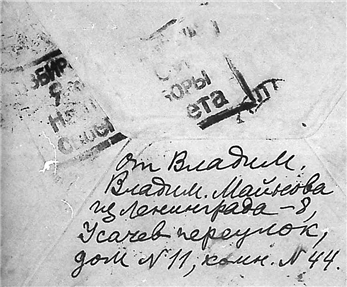 ЗБИР
На
СИ
БОРЫ
ета
От Владим.
Владим. Майнова
из Ленинграда-8,
Усачев переулок,
дом N 11, комн. N 44.